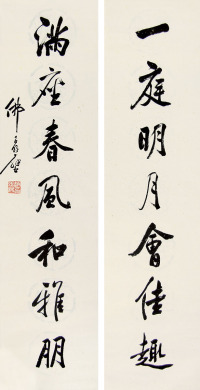 一庭明月會佳趣
滿座春風和雅朋
佛